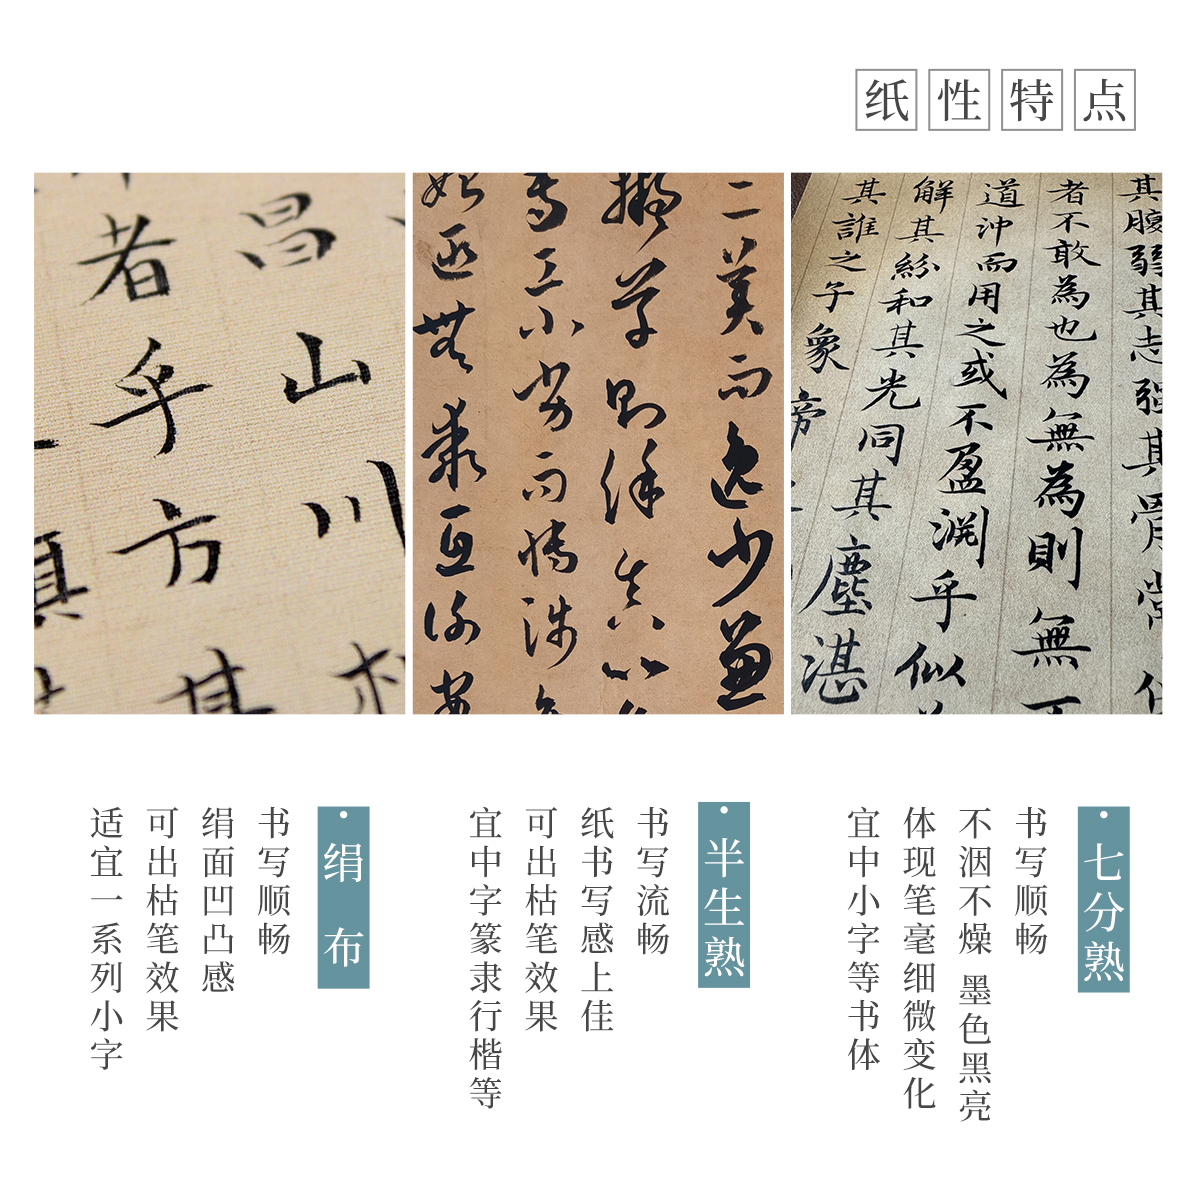 纸性特点
其腹弱其志强其骨常
者不敢為也為無為則無
道沖而用之或不盈渊乎似
解其紛和其光同其塵湛
其誰之子象帝
二美而逸少兼
擬学則餘
专工小劣而博涉
昌山川
者乎方其
七分熟
书写顺畅
不洇不燥 墨色黑亮
体现笔毫细微变化
宜中小字等书体
半生熟
书写流畅
纸书写感上佳
可出枯笔效果
宜中字篆隶行楷等
绢布
书写顺畅
绢面凹凸感
可出枯笔效果
适宜一系列小字